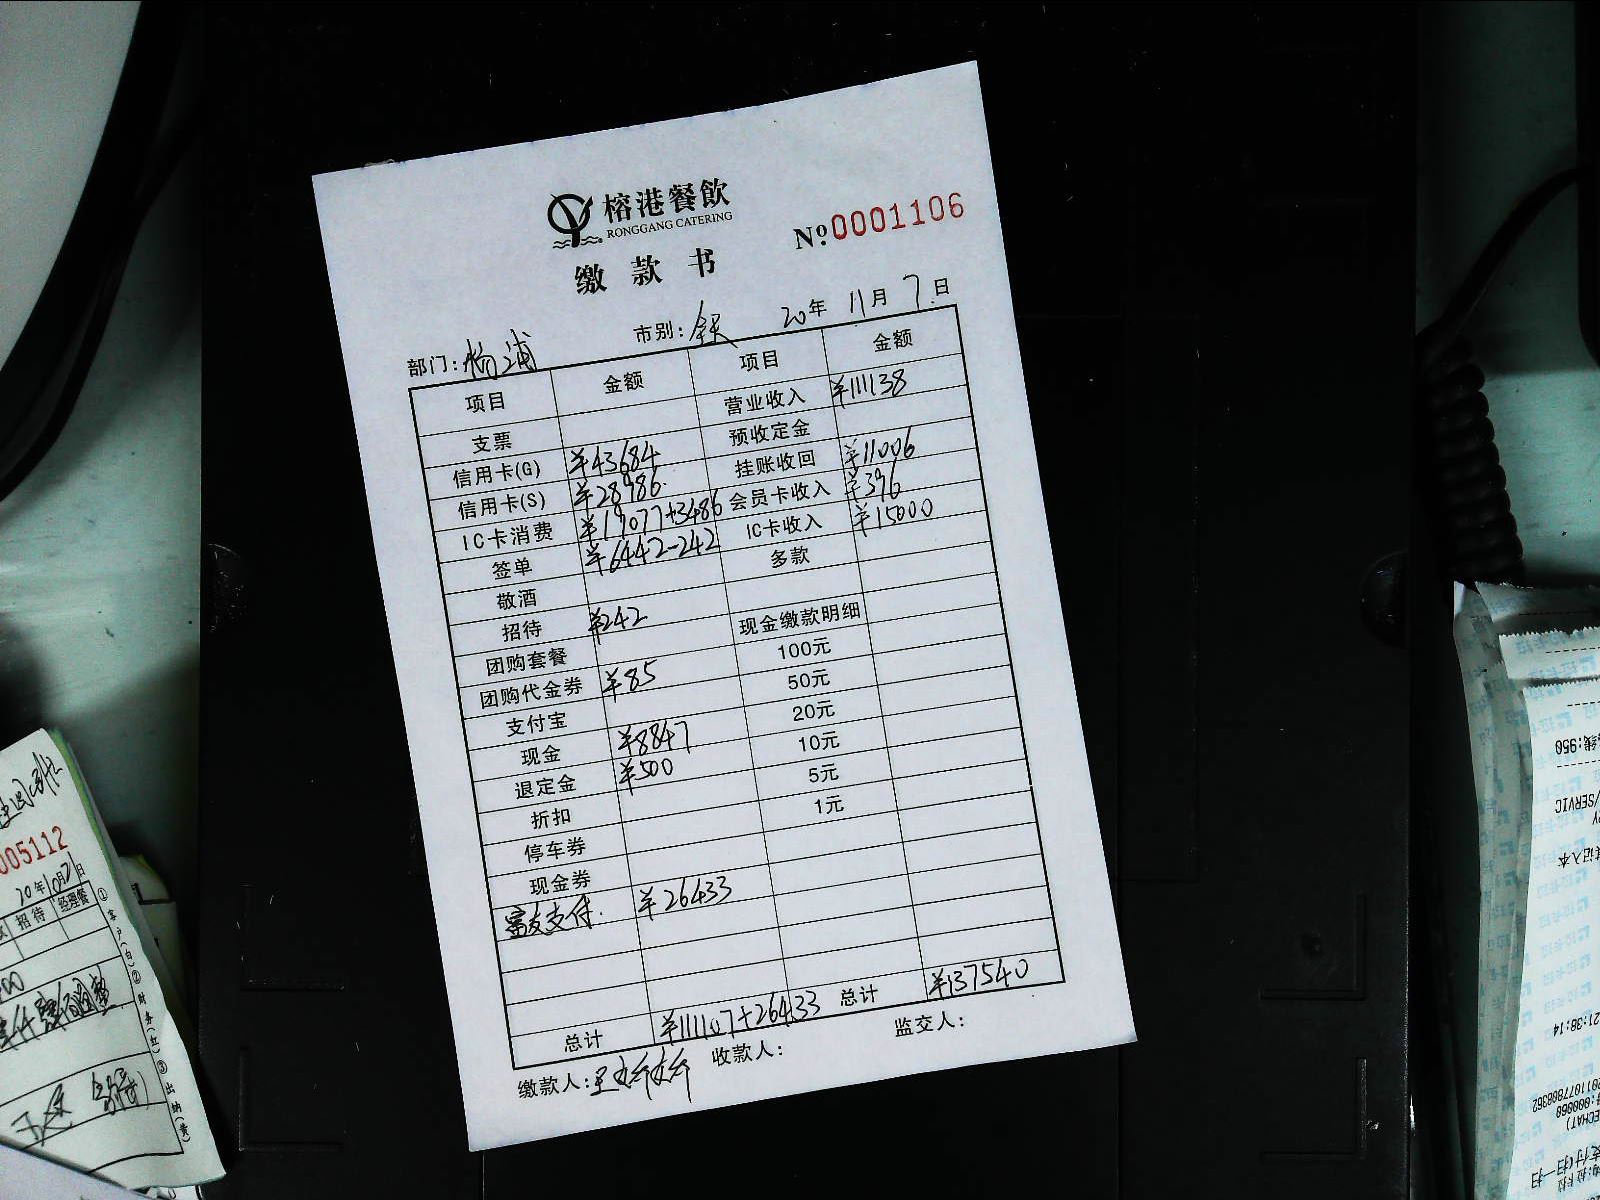 榕港餐飲
RONGGANG CATERING
№0001106
缴款书
部门:杨浦 市别:全天 20年 11月 7日
项目 金额 项目 金额
支票 营业收入 ¥111138
信用卡(G) ¥43684 预收定金
信用卡(S) ¥28986 挂账收回 ¥11006
IC卡消费 ¥19077+3486 会员卡收入 ¥396
签单 ¥6442-242 IC卡收入 ¥15000
敬酒 多款
招待 ¥242
团购套餐 现金缴款明细
团购代金券 ¥85 100元
支付宝 50元
现金 ¥8847 20元
退定金 ¥500 10元
折扣 5元
停车券 1元
现金券
富友支付. ¥26433
总计 ¥111107+26433 总计 ¥137540
缴款人:王 收款人: 监交人:
005112
20年10月21日
招待 经理餐
①客户(白)②财务(红)③出纳(黄)
线:950
/SERVIC
21:38:14
:000060
ECHAT)
扫一扫